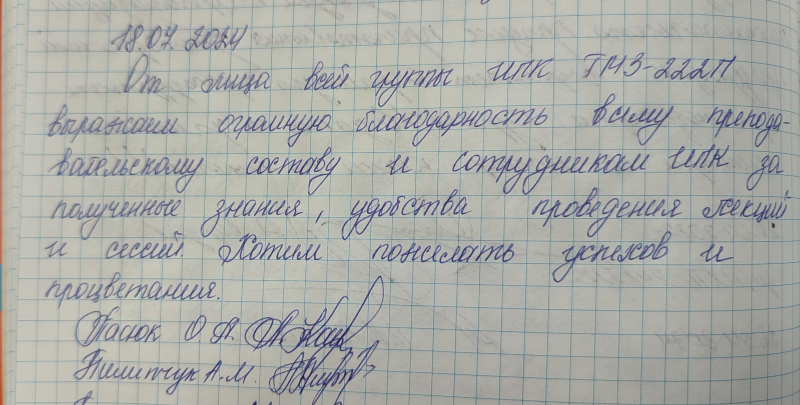 18.07.2024
От лица всей группы ИПК ГМЗ-222П
выражаем огромную благодарность всему препода-
вательскому составу и сотрудникам ИПК за
полученные знания, удобства проведения лекций
и сессий. Хотим пожелать успехов и
процветания.
Пасюк О.А.
Пилипчук А.М.